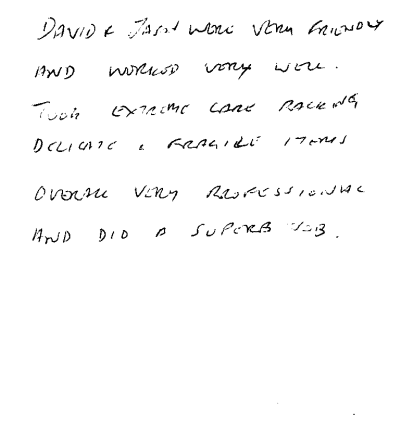 DAVID & JASON WERE VERY FRIENDLY
AND WORKED VERY WELL.
TOOK EXTREME CARE PACKING
DELICATE & FRAGILE ITEMS
OVERALL VERY PROFESSIONAL
AND DID A SUPERB JOB.